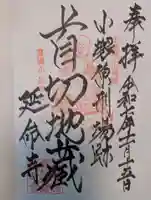 奉拝 令和六年十二月十五日
小塚原刑場跡
首切地蔵
延命寺